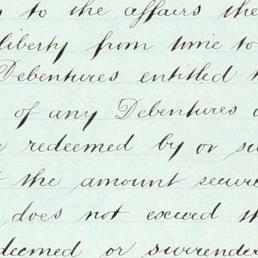 to the affairs the
liberty from time to
Debentures entitled t
of any Debentures o
e redeemed by or su
t the amount secure
does not exceed th
deemed or surrender